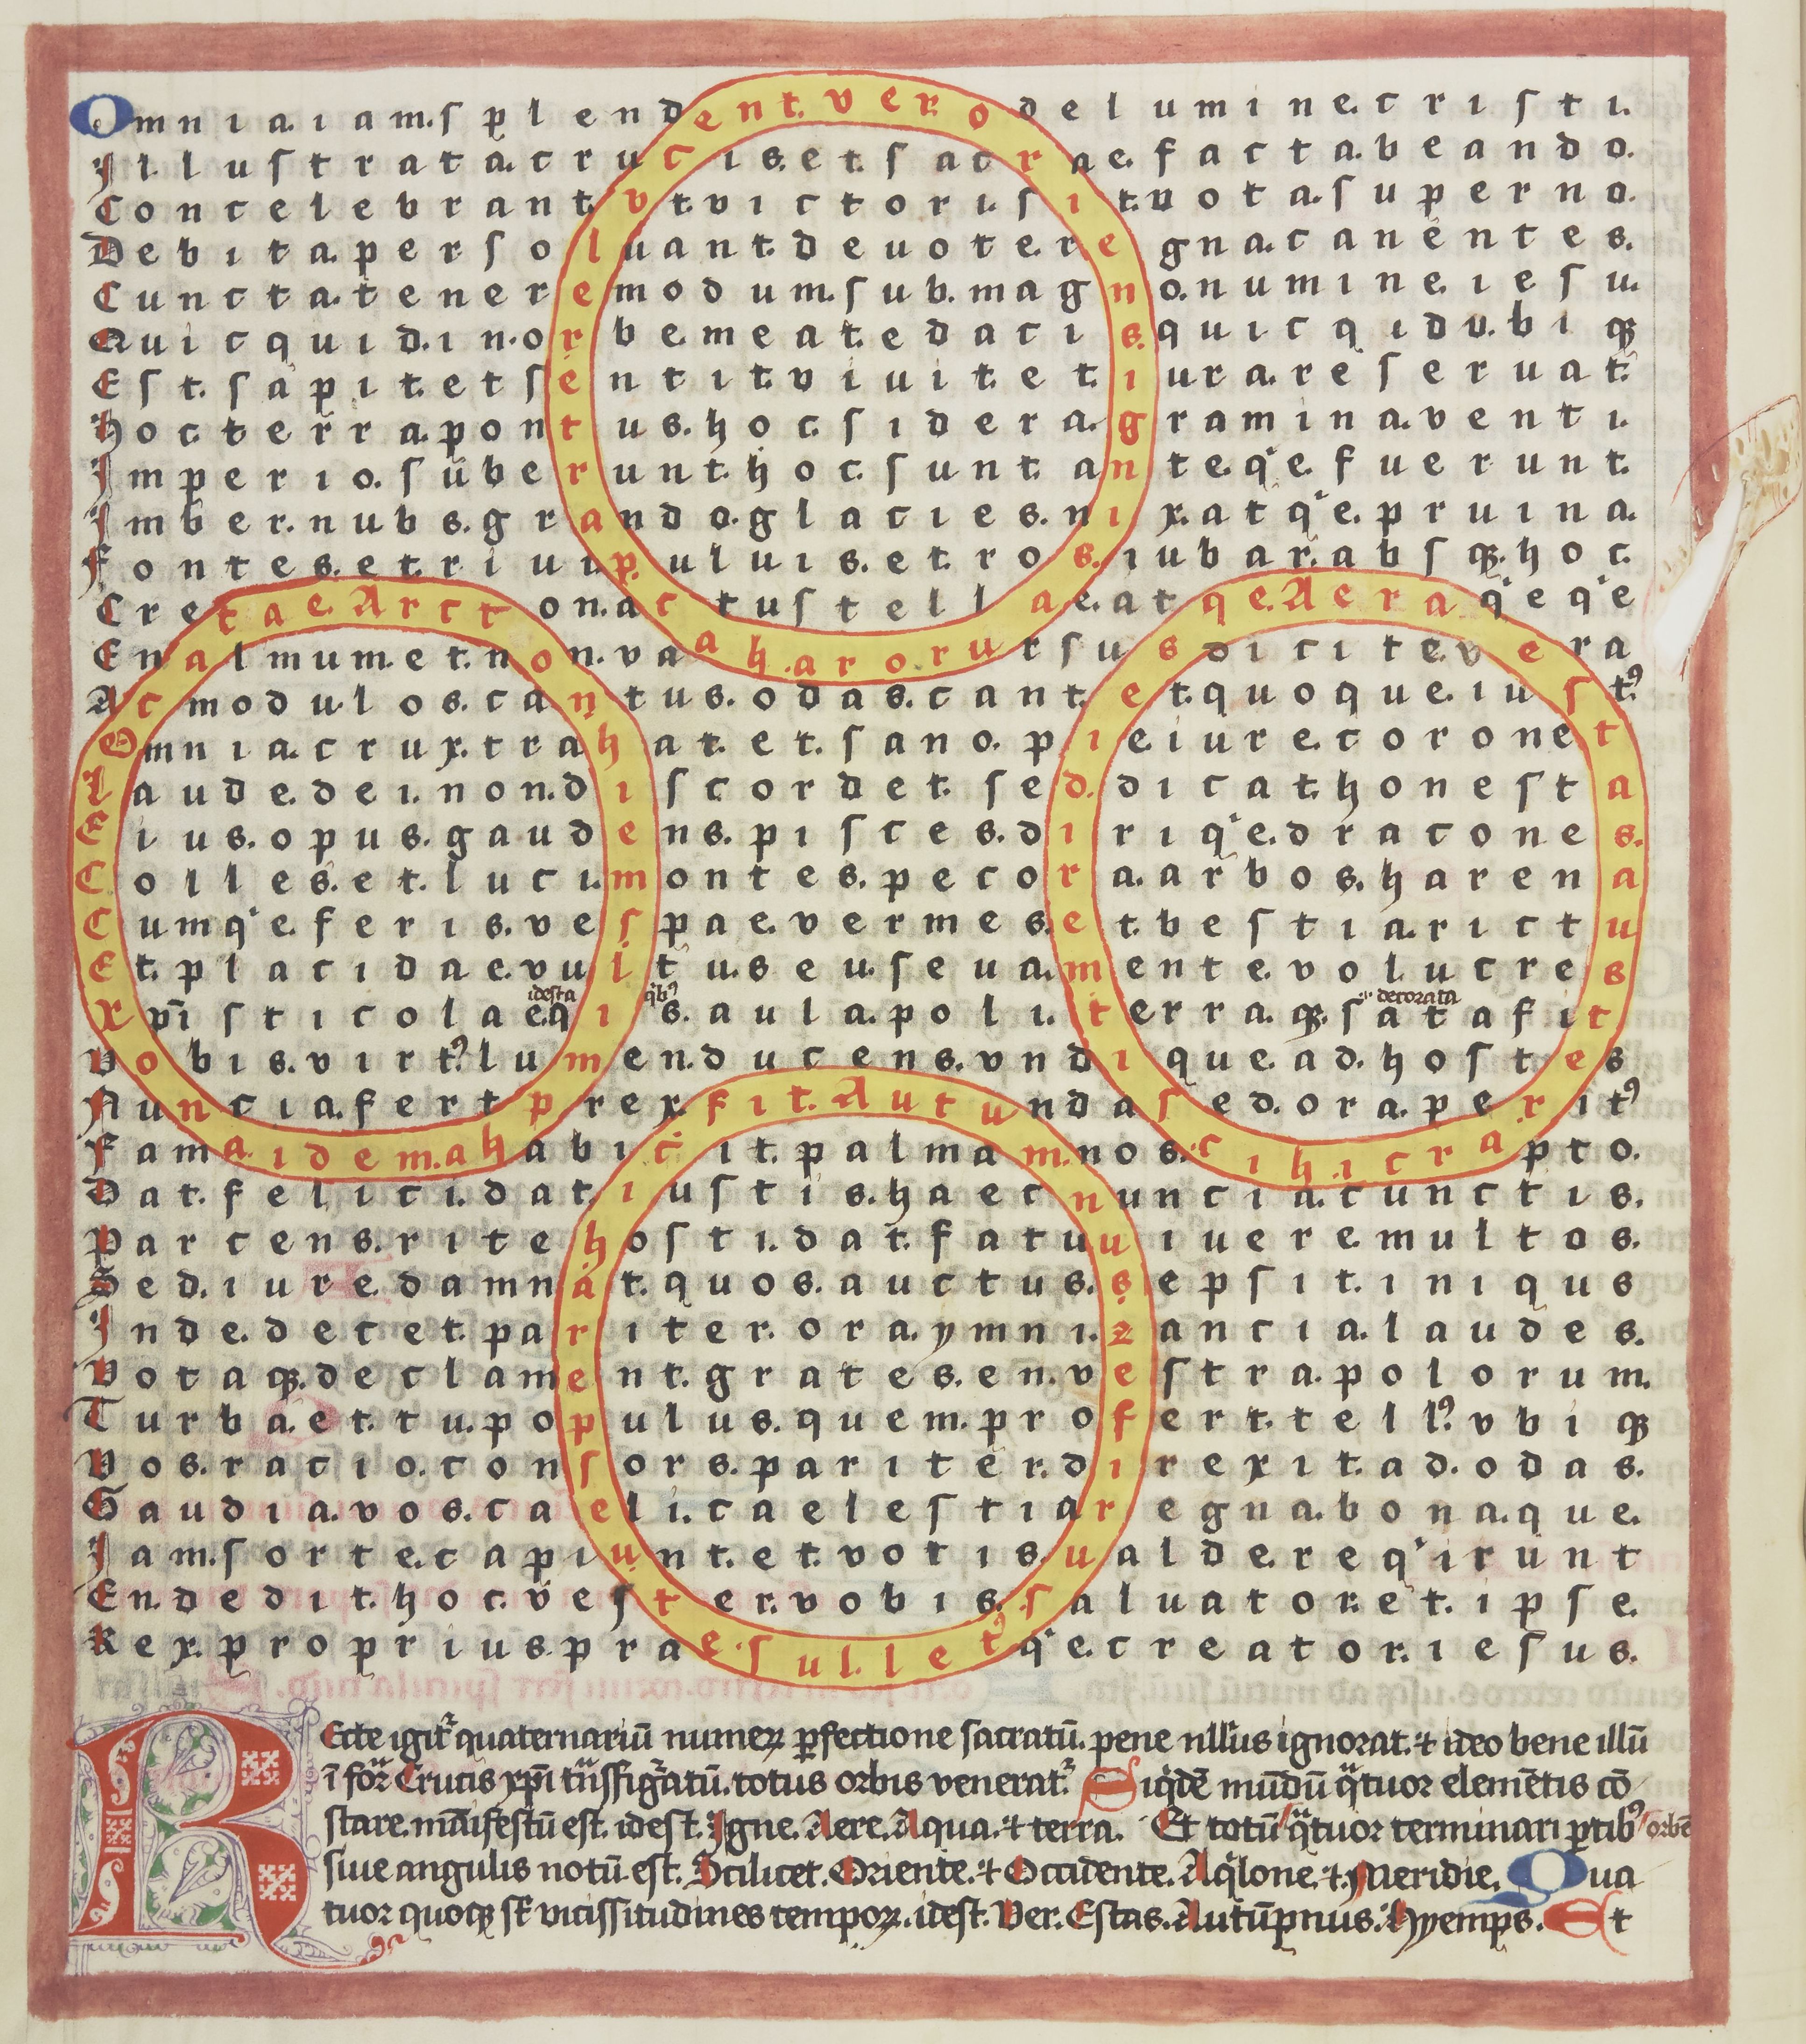 Omnia.iam.splendent.vero.de lumine.cristi.
Illustrata.crucis.et.sacrae.facta.beando.
Concelebrant.vt.victori.sit.vota.superno.
Debita.persoluant.deuote.regna.canentes.
Cuncta.tenere modum.sub.magno.numine.iesu.
Quicquid.in.orbe.meat.edacis quicqid v.biqꝫ
Est.sapit.et sentit.viuit.et.iura.reseruat.
Hoc.terra.pontus.hoc.sidera.gramina.venti.
Imperio.suberunt.hoc.sunt anteq'e.fuerunt.
Imber.nubs.grando.glacies.nix.atq'e.pruina.
Fontes.et.riui p.uluis.et.ros.iubar.absqꝫ.hoc.
Cretae.Arcton.actu stellae.atqe.Aera q'eq'e
En almum.et.non.vaah.arorursus dicite.vera
Ac modulos.cantus.odas.cant.et.quoque.iust⁹
Omnia.crux.trahat.et.sano.pie iure.coronet
Laude.dei.non.discordet.sed.dicat.honesta
Eius.opus.gaudens.pisces.diriq'e.dracones.
Colles.et.luci.montes.pecora.arbos.harena
Cumq'e.feris.vespae.vermes.et.bestia.rictus
Et.placidae.vultus euseua.mente.volucres
idesta qib⁹ decorata
Xpīsticolae q is.aula.poli.terraqꝫ.sata fit
Vobis.virt⁹ lumen.ducens.vndique.ad.hostes
Nuncia.fert prex.fit.Autunda sed.ora.perit⁹
Fama.idem.ah abicit.palmam.nos.cih.icrapto.
Dat.felici.dat.iustis.haec nuncia.cunctis.
Parcens.rite hosti.dat.fatuuiuere.multos.
Sed.iure.damnat.quos.auctus.sepsit.iniqus
Inde.decet.pariter.ora.ymni.zancia.laudes.
Votaqꝫ.declament.grates.en.vestra.polorum.
Turba.et.tu.populus.quem.profert.tell⁹ vbiqꝫ
Vos.ratio.consors.pariter.direxit.ad.odas.
Gaudia.vos.caeli.caelestiaregna.bona.que.
Iam.sorte.capiunt.et.votis.ualde.req'irunt
En.dedit.hoc.vester.vobis.saluator.et.ipse.
Rex.proprius.praesul.let⁹q'e.creator.iesus.
Recte igit͛ quaternariū numeꝝ ꝑfectione sacratū. pene nllīus ignorat. ⁊ ideo bene illū
ī for̄a Crucis xp̄i t͛nsfig͛atū. totus orbis venerat͛. Siq̇dē mūdū q͛tuor elemētis cō
stare. māifestū est. idest. Igne. Aere. Aqua. ⁊ terra. Et totū q͛tuor terminari ꝑtib⁹ orbē
siue angulis notū est. Scilicet. Oriente. ⁊ Occidente. Aq̇lone. ⁊ Meridie. Qua
tuor quoqꝫ st̄ vicissitudines tempoꝝ. idest. Ver. Estas. Autūpnus. Hyemps. Et